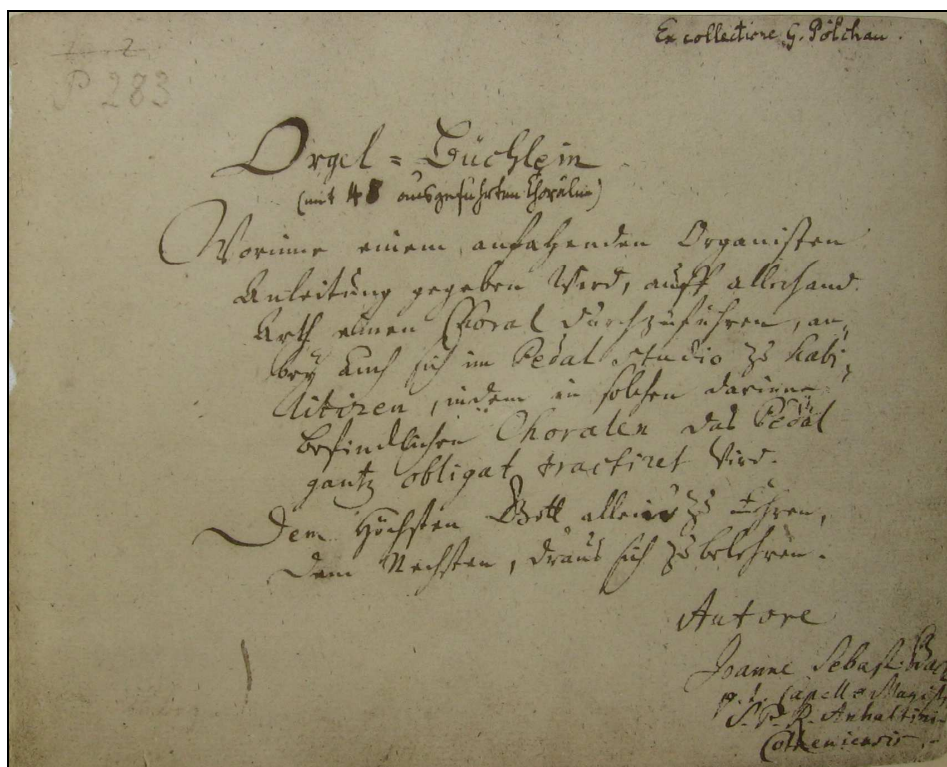 Ex collectione G. Pölchau.
P 283
Orgel-Büchlein
(mit 48 ausgeführten Chorälen)
Worinne einem anfahenden Organisten
Anleitung gegeben wird, auff allerhand
Arth einen Choral durchzuführen, an-
bey auch sich im Pedal studio zu habi-
litiren, indem in solchen darinne
befindlichen Choralen das Pedal
gantz obligat tractiret wird.
Dem Höchsten Gott allein zu Ehren,
Dem Nechsten, draus sich zu belehren.
Autore
Joanne Sebast. Bach
p. t. Capellæ Magist.
S. P. R. Anhaltini-
Cotheniensis.